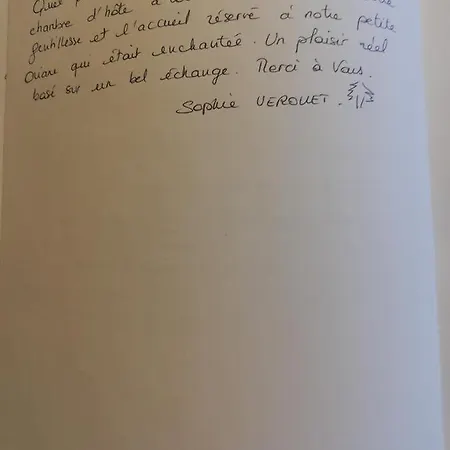 Quel
chambre d'hôte à
gentillesse et l'accueil réservé à notre petite
qui était enchantée. Un plaisir réel
basé sur un bel échange. Merci à Vous.
Sophie VEROUET.